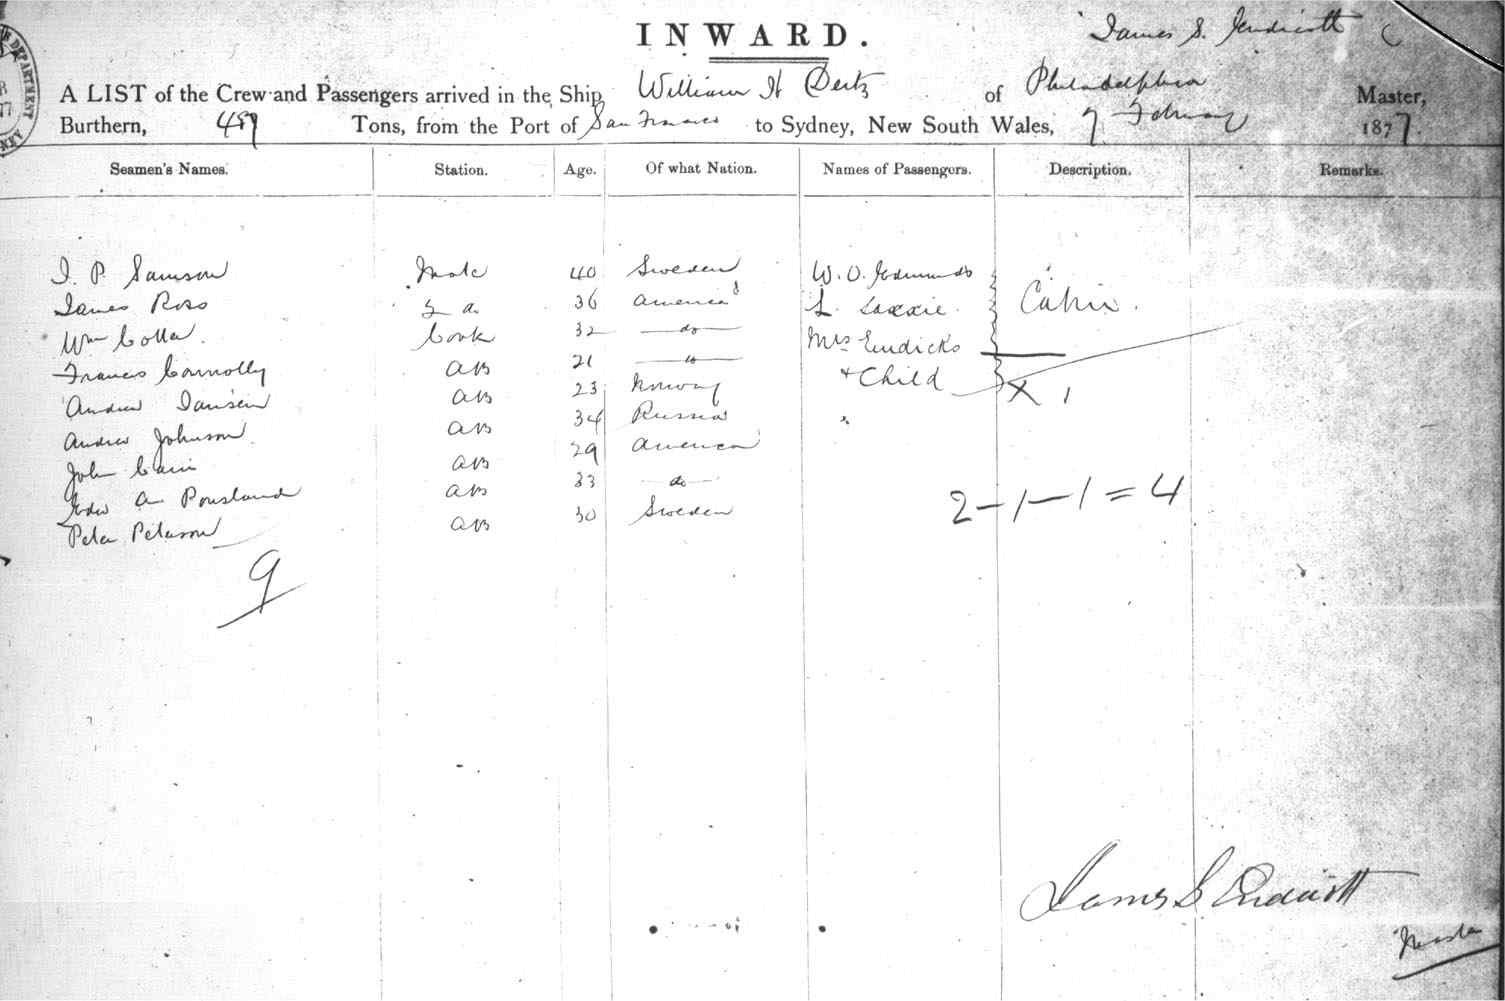 INWARD.
James S. Endicott
A LIST of the Crew and Passengers arrived in the Ship William H Deitz of Philadelphia Master,
Burthern, 489 Tons, from the Port of San Franco to Sydney, New South Wales, 7 February 1877.
Seamen's Names. Station. Age. Of what Nation. Names of Passengers. Description. Remarks.
J. P. Samson Mate 40 Sweden W. O. Edmunds
James Ross 2 do 36 America L. Laxxie. Cabin.
Wm Colla Cook 32 do Mrs Endicks
Francis Connolly AB 21 do + Child X 1
Andrew Jansen AB 23 Norway
Andrew Johnson AB 34 Russia
John Cain AB 29 American
Edw A Pousland AB 33 do 2-1-1=4
Peter Peterson AB 30 Sweden
9
James S Endicott
Master